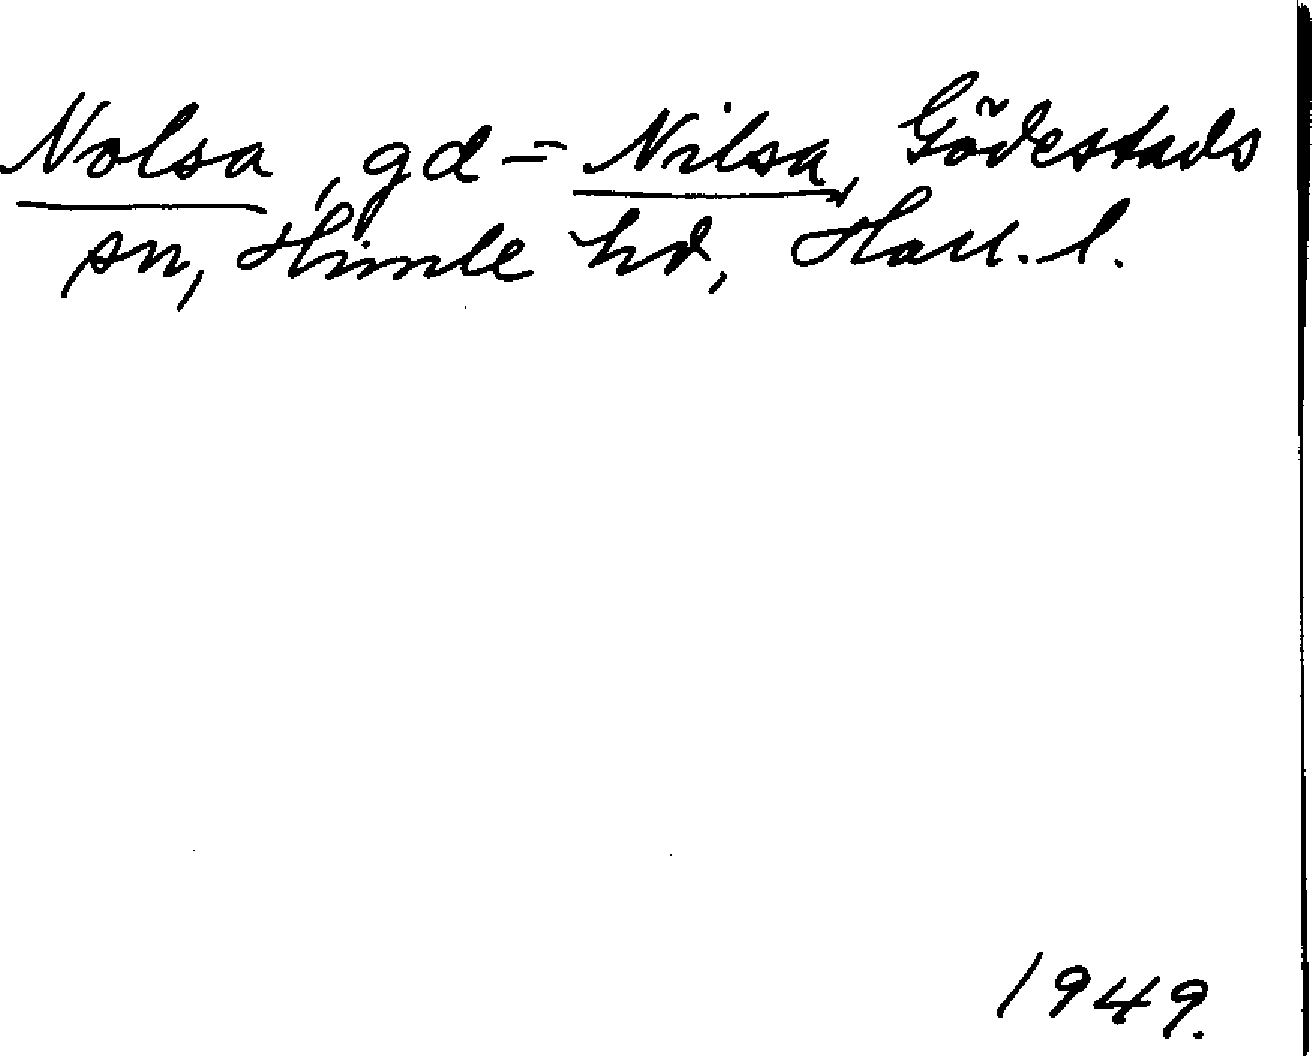 Nolsa, gd = Nilsa, Gödestads
sn, Himle hd, Hall. l.
1949.